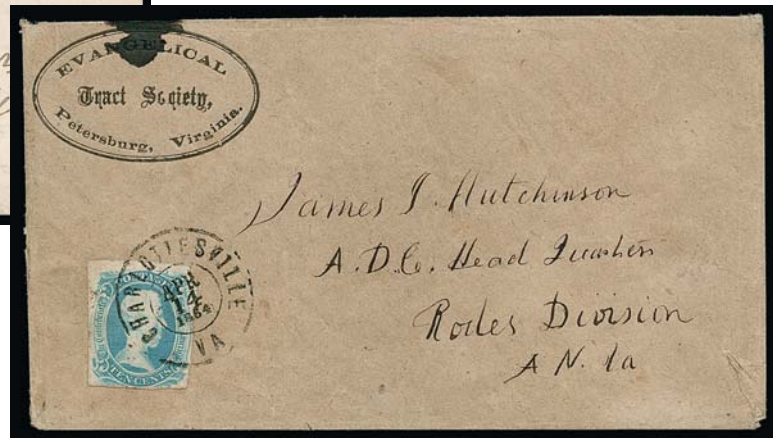 EVANGELICAL
Tract Society,
Petersburg, Virginia.
CHARLOTTESVILLE
APR
14
1864
VA
TEN CENTS
James J. Hutchinson
A.D.C. Head Quarters
Rodes Division
A N. Va